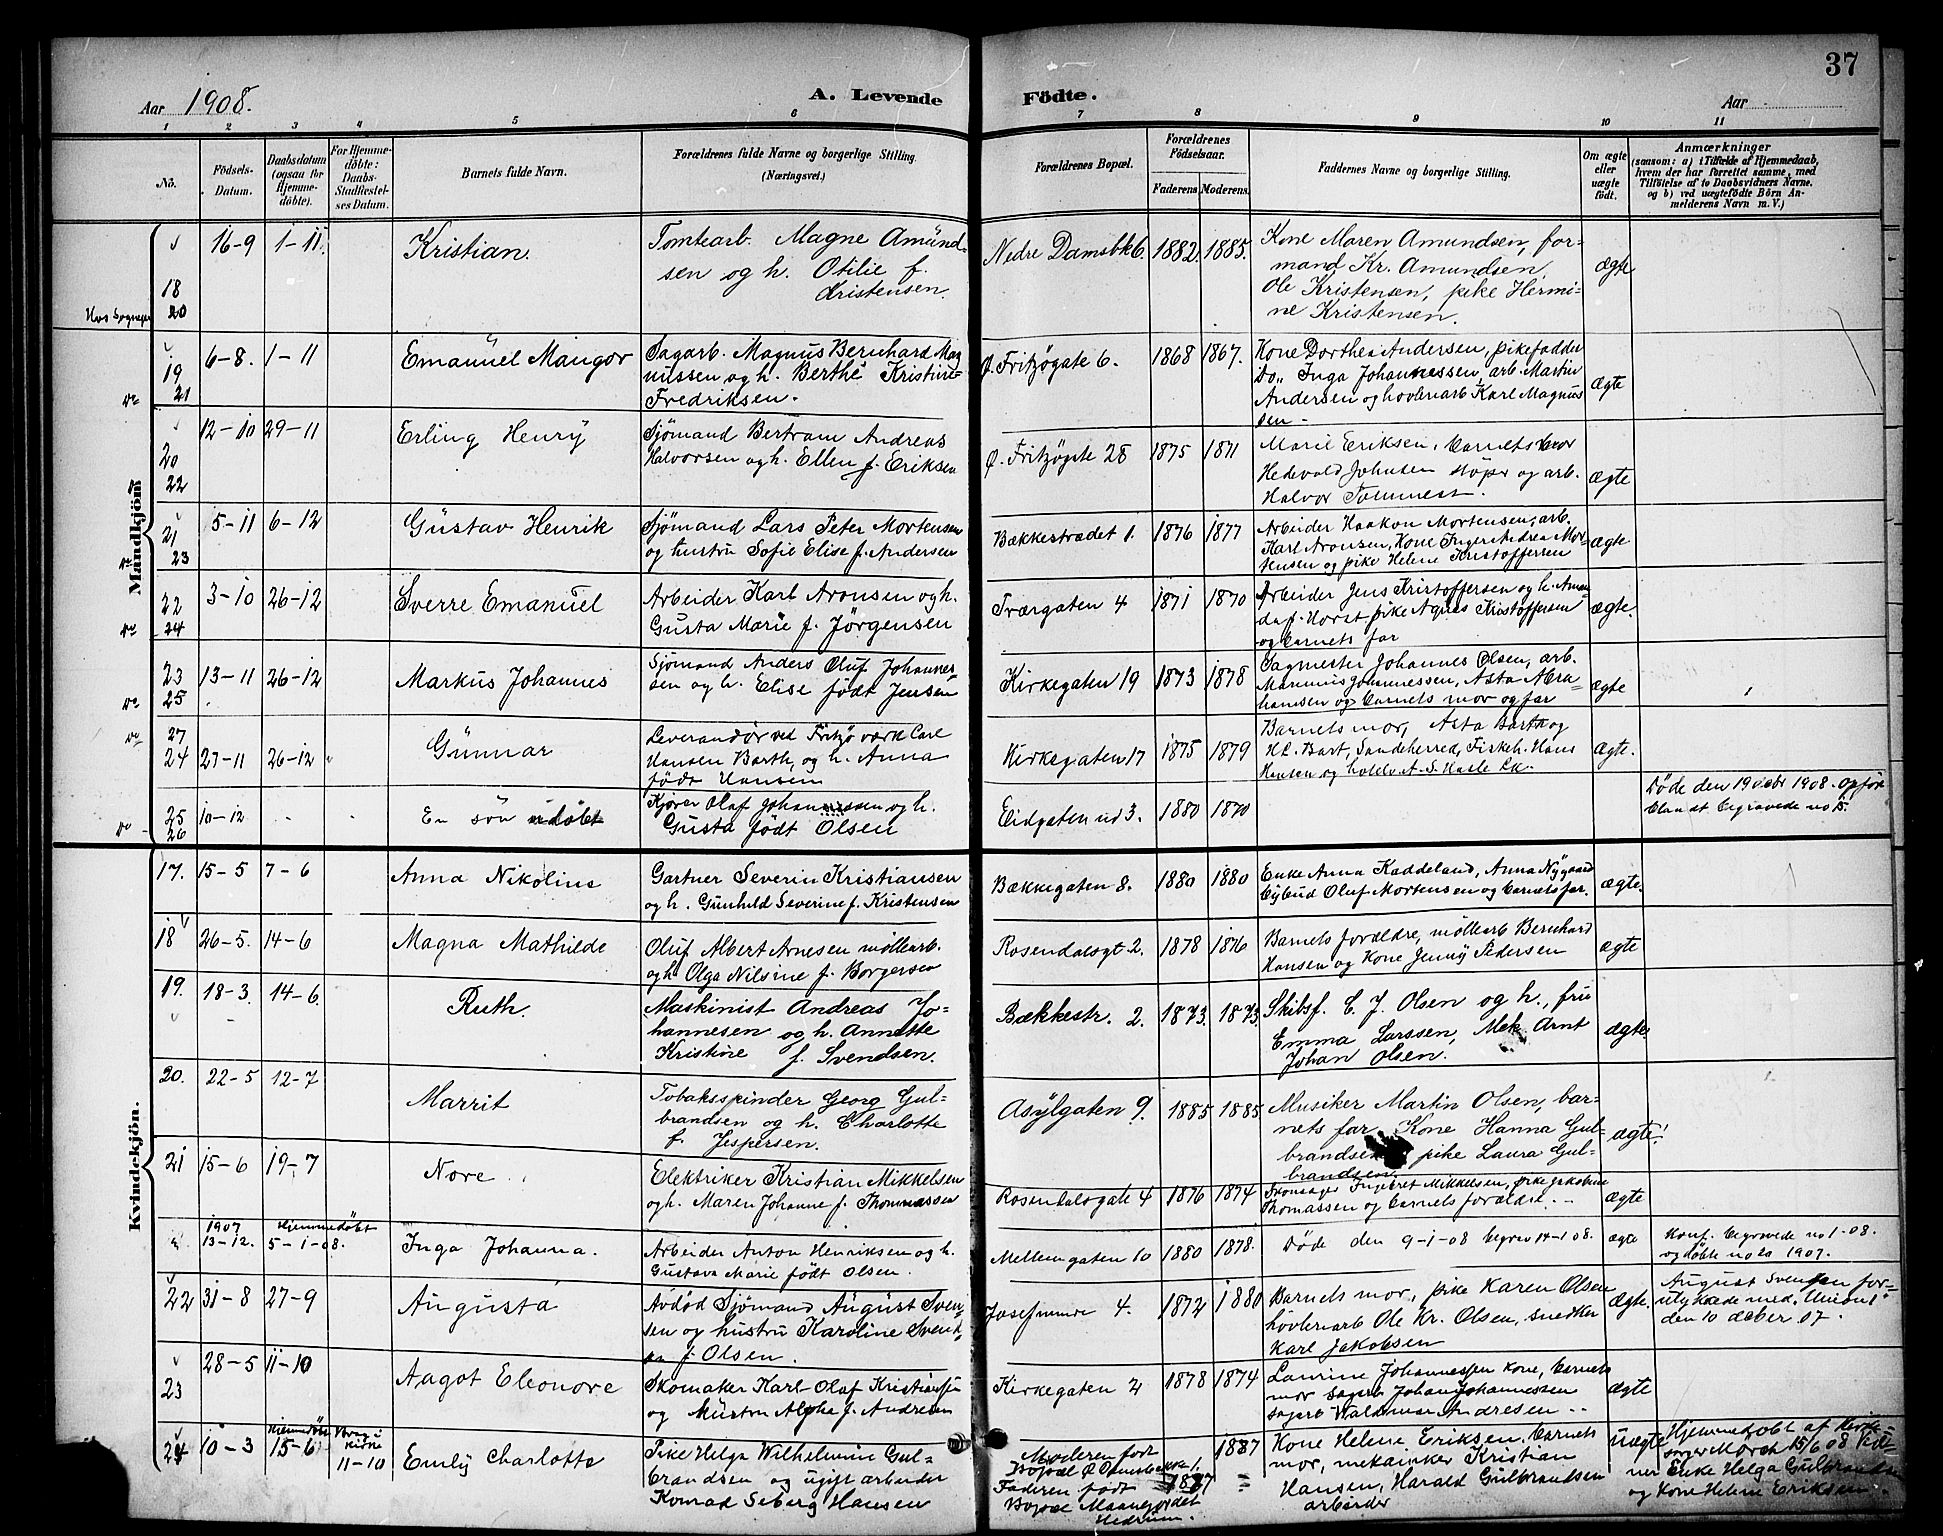 37
Aar 1908.
A. Levende Födte.
Aar
1 2 3 4 5 6 7 8 9 10 11
No.
Födsels-
Datum.
Daabsdatum
(ogsaa for
Hjemme-
döbte).
For Hjemme-
döbte:
Daabs-
Stadfæstel-
ses Datum.
Barnets fulde Navn.
Forældrenes fulde Navne og borgerlige Stilling.
(Næringsvei.)
Forældrenes Bopæl.
Forældrenes
Födselsaar.
Faderens. Moderens.
Faddernes Navne og borgerlige Stilling.
Om ægte
eller
uægte
födt.
Anmærkninger
(saasom: a) i Tilfælde af Hjemmedaab,
hvem der har forrettet samme, med
Tilföielse af to Daabsvidners Navne.
og b) ved uægtefödte Börn An-
melderens Navn m. V.)
Mandkjön
18
20
16-9 1-11
Kristian.
Tomtearb. Magne Amund-
sen og h. Otilie f.
Kristensen.
Nedre Damsbk6. 1882. 1885.
Kone Maren Amundsen, for-
mand Kr. Amundsen,
Ole Kristensen, pike Hermi-
ne Kristensen.
ægte
19
21
6-8. 1-11
Emanuel Mangor
Sagarb. Magnus Bernhard Mag
nussen og h. Berthe Kristine
Fredriksen.
Ø. Fritzögate 6. 1868 1867.
Kone Dorthea Andersen, pike fadder
Do,, Inga Johannessen, arb. Martin
Andersen og hövleriarb Karl Magnus
sen -
ægte
20
22
12-10 29-11
Erling Henry
Sjömand Bertram Andreas
Halvorsen og h. Ellen f. Eriksen
Ø. Fritzögte 28 1875 1871
Marie Eriksen, barnets mor
Hedevald Johnsen og arb.
Halvor
ægte
21
23
5-11 6-12
Gustav Henrik
Sjömand Lars Peter Mortensen
og hustru Sofie Elise f. Andersen
Bækkestrædet 1. 1876 1877
Arbeider Haakon Mortensen, arb.
Karl Aronsen, Kone Inger Andrea Mor-
tensen og pike Helene Kristoffersen
ægte
22
24
3-10 26-12
Sverre Emanuel
Arbeider Karl Aronsen og h.
Gusta Marie f. Jörgensen
Tværgaten 4 1871 1870
Arbeider Jens Kristoffersen og h. Aman
da f. Horst pike Agnes Kristoffersen
og barnets far
ægte.
23
25
13-11 26-12
Markus Johannes
Sjömand Anders Oluf Johannes
sen og h. Elise födt Jensen
Kirkegaten 19 1873 1878
Sagmester Johannes Olsen, arb.
Marinius Johannessen, Asta Abra-
hamsen og barnets mor og far
ægte
27
24
27-11 26-12
Gunnar
Leverandör ved Fritzö værk Carl
Hansen Barth, og h. Anna
födt Hansen
Kirkegaten 17 1875 1879
Barnets mor, Asta Barth og
H.C. Bart, Sandeherred, Fiskeh. Hans
Hansen og
ægte.
25
26
10-12
En sön udöbt
Kjörer Olaf Johannessen og h.
Gusta födt Olsen
Eidgaten nd 3. 1880 1870
Döde den 19 1908. Opför
blandt begravede no 15.
Kvindekjön.
17. 15-5 7-6
Anna Nikoline
Gartner Severin Kristiansen
og h. Gunhild Severine f. Kristensen
Bækkegaten 8. 1880 1880
Enke Anna Kaddeland, Anna Nygaard
Bybud Oluf Mortensen og barnets far.
ægte.
18 26-5. 14-6
Magna Mathilde
Oluf Albert Arnesen möllearb.
og h Olga Nilsine f. Borgersen
Rosendalsgt 2. 1878 1876
Barnets forældre, möllearb Bernhard
Hansen og Kone Jenny Pedersen
ægte
19. 18-3. 14-6.
Ruth.
Maskinist Andreas Jo-
hannesen og h. Annette
Kristine f. Svendsen.
Bækkestr. 2. 1873. 1873.
Skibsf. C. J. Olsen og h., fru
Emma Larssen, Mek. Arnt
Johan Olsen.
ægte.
20. 22-5 12-7
Marrit
Tobaksspinder Georg Gul-
brandsen og h. Charlotte
f. Jespersen.
Asylgaten 9. 1885 1885
Musiker Martin Olsen, bar-
nets far, Kone Hanna Gul-
brandsen, pike Laura Gul-
brandsen
ægte!
21 15-6 19-7
Nore
Elektriker Kristian Mikkelsen
og h. Maren Johanne f. Thomassen
Rosendalsgate 4 1876 1874
Ingebret Mikkelsen, pike Jakobine
Thomassen og barnets forældre. --
ægte
1907
13-12.
Hjemmedöbt
5-1-08.
Inga Johanna.
Arbeider Anton Henriksen og h.
Gustava Marie födt Olsen.
Mellemgaten 10 1880 1878.
Döde den 9-1-08 begrav 14-1 08.
ægte
Konf. begravede no 1-08.
og döbte no 20 1907.
22 31-8 27-9
Augusta
Avdöd Sjömand August Sven
sen og hustru Karoline Svend
sen f. Olsen.
Josefinunde 4. 1872 1880
Barnets mor, pike Karen Olsen
hövleriarb Ole Kr. Olsen, snedker
Karl Jakobsen
ægte.
August Svensen for-
ulykkede med "Unionl"
den 10 dcber 07.
23
28-5 11-10
Aagot Eleonore
Skomaker Karl Olaf Kristiansen
og hustru Alpha f. Andresen
Kirkegaten 2 1878 1874
Laurine Johannessen kone, barnets
mor sagarb Johan Johannessen
sagarb Waldemar Andresen --
ægte
24 10-3
Hjemmedöbt
15-6
11-10
Emly Charlotte
Pike Helga Wilhelmine Gul-
brandsen og ugift arbeider
Konrad Seberg Hansen
Moderen födt
Bopæl Ø Damsbakke 1.
Faderen födt 1887
Bopæl
Hedrum.
1887
Kone Helene Eriksen, barnets
mor, mekaniker Kristian
Hansen, Harald Gulbrandsen
arbeider
uægte
Hjemmedöbt af
15/6 08
ner Enke Helga Gulbrandsen
og Kone Helene Eriksen